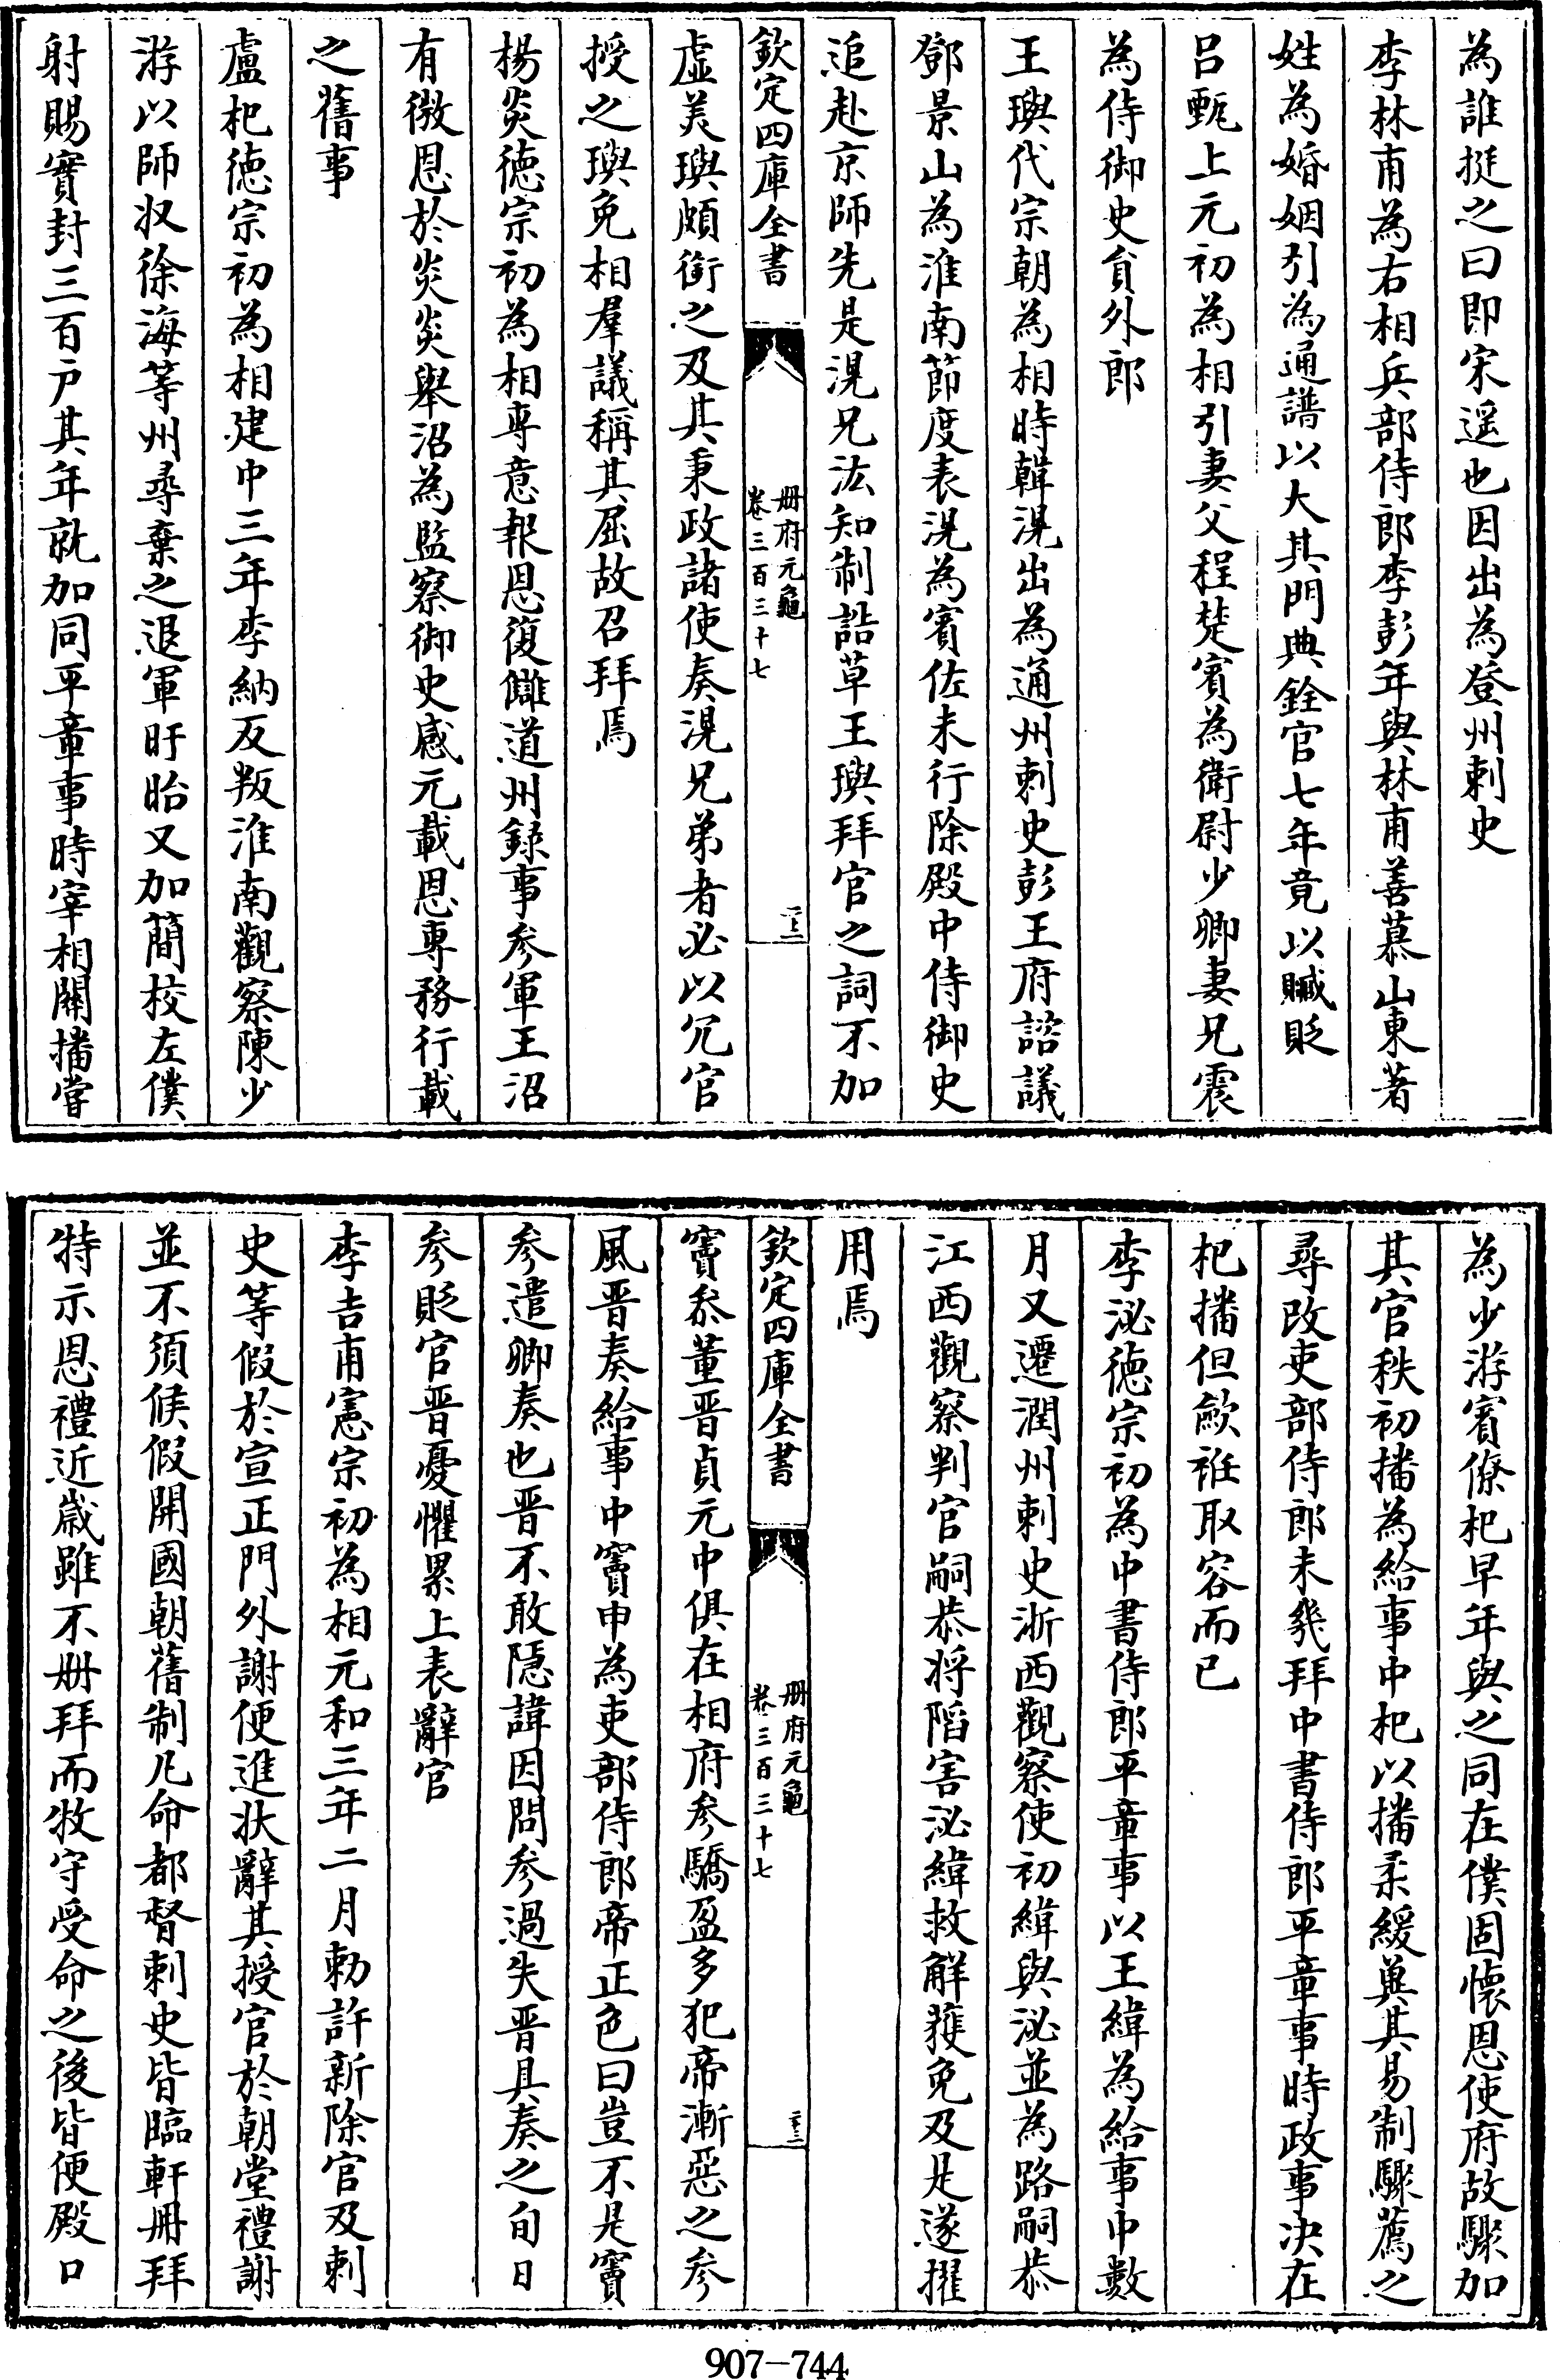 為誰挺之曰即宋遥也因出為登州刺史
李林甫為右相兵部侍郎李彭年與林甫善慕山東著
姓為婚姻引為通譜以大其門典銓官七年竟以贓貶
吕甄上元初為相引妻父程楚賓為衛尉少卿妻兄震
為侍御史負外郎
王璵代宗朝為相時韓滉出為通州刺史彭王府諮議
鄧景山為淮南節度表滉為賓佐未行除殿中侍御史
追赴京師先是滉兄汯知制誥草王璵拜官之詞不加
欽定四庫全書
册府元龜
卷三百三十七
虚美璵頗銜之及其秉政諸使奏滉兄弟者必以冗官
授之璵免相羣議稱其屈故召拜焉
楊炎徳宗初為相専意報恩復讎道州録事參軍王沼
有微恩於炎炎舉沼為監察御史感元載恩專務行載
之舊事
盧杞徳宗初為相建中三年李納反叛淮南觀察陳少
游以師収徐海等州尋棄之退軍盱眙又加簡校左僕
射賜實封三百户其年就加同平章事時宰相關播嘗
為少游賓僚杞早年與之同在僕固懷恩使府故驟加
其官秩初播為給事中杞以播柔緩冀其易制驟薦之
尋改吏部侍郎未幾拜中書侍郎平章事時政事决在
杞播但歛袵取容而已
李泌徳宗初為中書侍郎平章事以王緯為給事中數
月又遷潤州刺史浙西觀察使初緯與泌並為路嗣恭
江西觀察判官嗣恭將陷害泌緯救解獲免及是遂擢
用焉
欽定四庫全書
册府元龜
卷三百三十七
竇叅董晋貞元中俱在相府參驕盈多犯帝漸惡之參
風晋奏給事中竇申為吏部侍郎帝正色曰豈不是竇
參遣卿奏也晋不敢隱諱因問參過失晋具奏之旬日
參貶官晋憂懼累上表辭官
李吉甫憲宗初為相元和三年二月勅許新除官及刺
史等假於宣正門外謝便進狀辭其授官於朝堂禮謝
並不須候假開國朝舊制凡命都督刺史皆臨軒册拜
特示恩禮近嵗雖不册拜而牧守受命之後皆便殿口
907-744